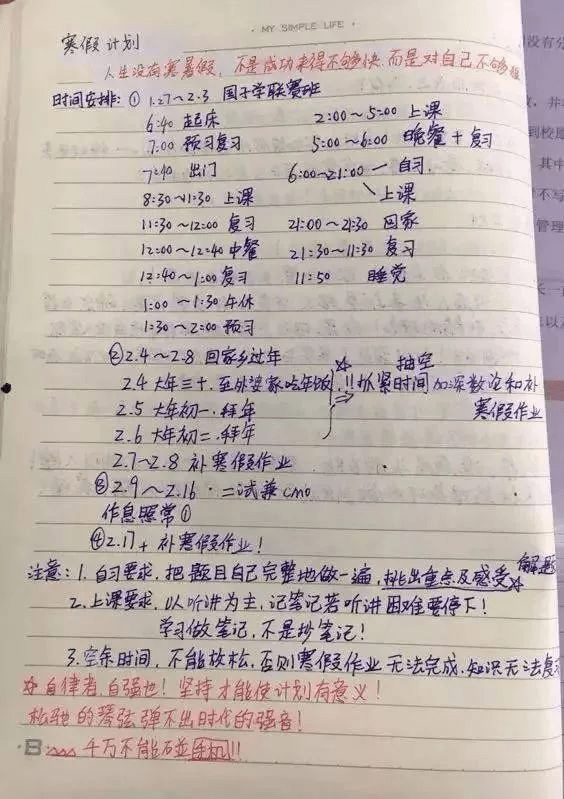 · MY SIMPLE LIFE ·
寒假计划
人生没有寒暑假，不是成功来得不够快而是对自己不够狠
时间安排：① 1.27～2.3 国子学联赛班
6:40 起床 2:00～5:00 上课
7:00 预习复习 5:00～6:00 晚餐＋复习
7:40 出门 6:00～21:00 一 自习
8:30～11:30 上课 上课
11:30～12:00 复习 21:00～21:30 回家
12:00～12:40 中餐 21:30～11:30 复习
12:40～1:00 复习 11:50 睡觉
1:00～1:30 午休
1:30～2:00 预习
② 2.4～2.8 回家乡过年
2.4 大年三十．至外婆家吃年饭 ☆ 抽空
!! 抓紧时间 加深数论和补
2.5 大年初一．拜年 ⇒ 寒假作业
2.6 大年初二．拜年
2.7～2.8 补寒假作业
③ 2.9～2.16．二试兼cmo
作息照常①
④ 2.17+ 补寒假作业！
注意：1. 自习要求，把题目自己完整地做一遍，挑出重点及感受☆解题
2. 上课要求，以听讲为主，记笔记若听讲困难要停下！
学习做笔记，不是抄笔记！
3. 空余时间，不能放松，否则寒假作业无法完成，知识无法复
☆ 自律者，自强也！坚持才能使计划有意义！
松驰的琴弦弹不出时代的强音！
千万不能碰手机!!
没有分
到校
其中
不写
管理